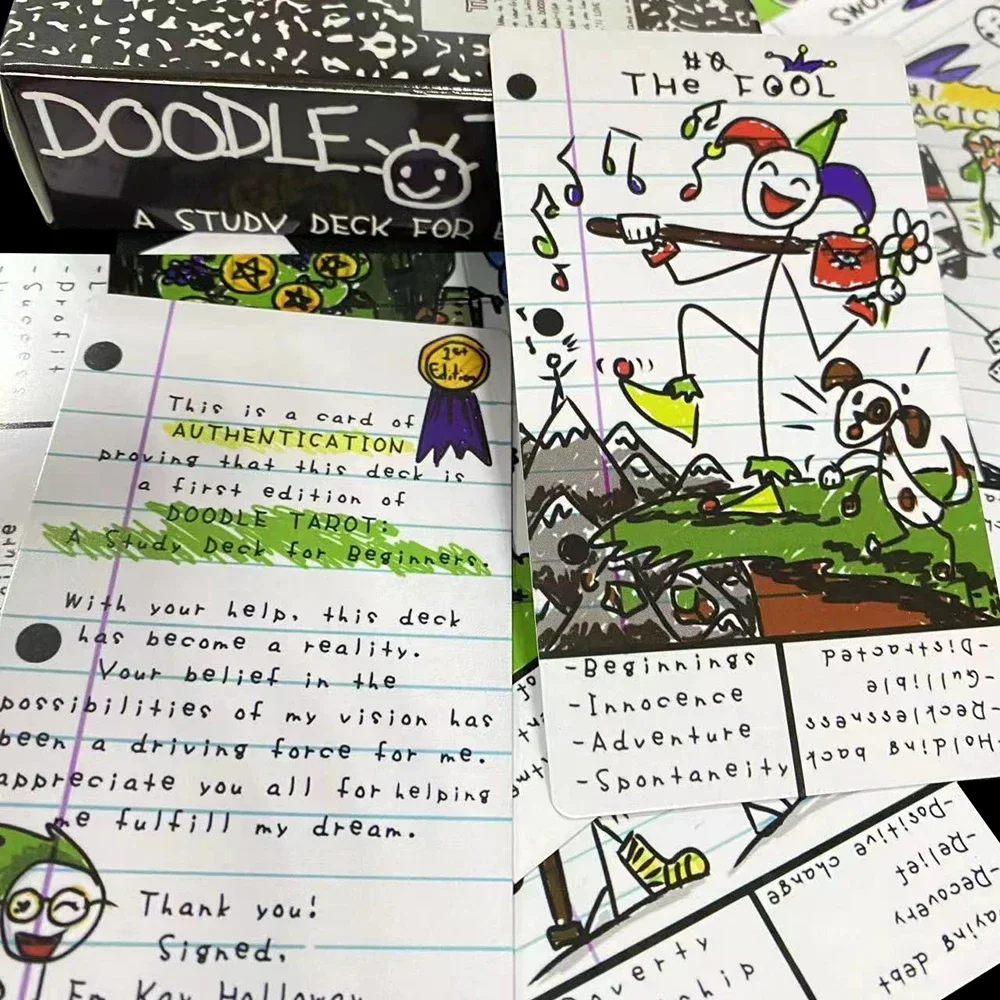 DOODLE
A STUDY DECK FOR
#0
THE FOOL
-Beginnings
-Innocence
-Adventure
-Spontaneity
-Holding back
-Recklessness
-Gullible
-Distracted
1st
Edition
This is a card of
AUTHENTICATION
proving that this deck is
a first edition of
DOODLE TAROT:
A Study Deck for Beginners.
With your help, this deck
has become a reality.
Your belief in the
possibilities of my vision has
been a driving force for me.
appreciate you all for helping
me fulfill my dream.
Thank you!
Signed,
Em Kay Holloway
#1
-Positive change
-Relief
-Recovery
debt
profit
Success